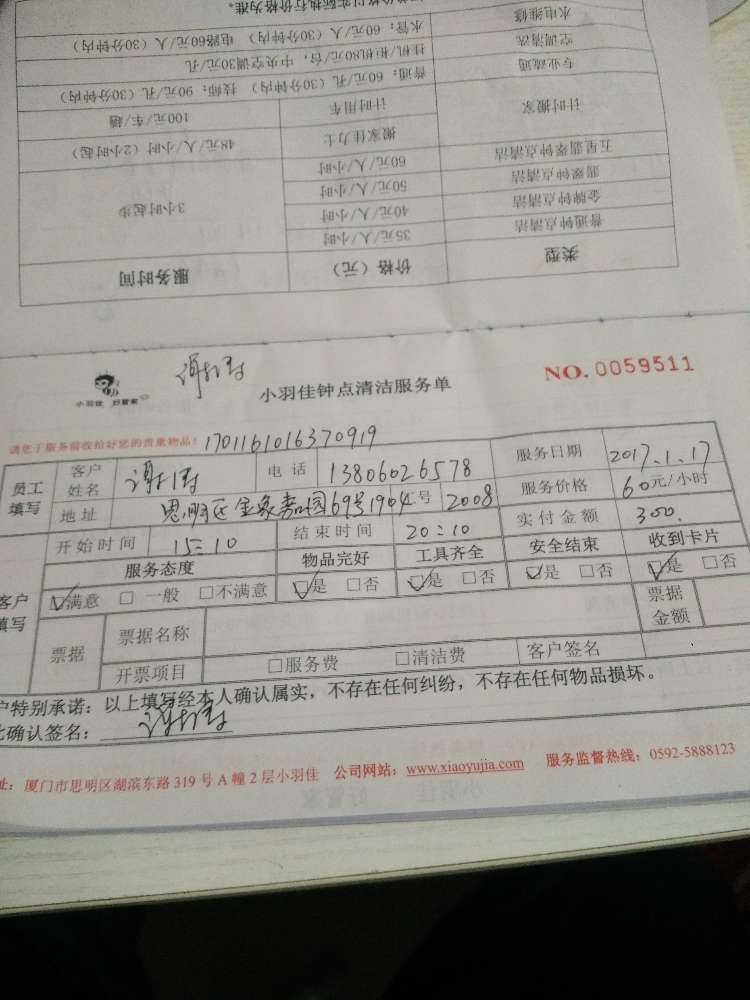 类型 价格（元） 服务时间
普通钟点清洁 35元/人/小时 3小时起步
金牌钟点清洁 40元/人/小时
翡翠钟点清洁 50元/人/小时
五星翡翠钟点清洁 60元/人/小时
计时搬家 搬家佳力士 48元/人/小时（2小时起）
计时用车 100元/车/趟
专业疏通 普通：60元/孔（30分钟内） 技师：90元/孔（30分钟内）
空调清洗 挂机/柜机80元/台，中央空调30元/孔
水电维修 水管：60元/人（30分钟内） 电路60元/人（30分钟内）
实际执行价格为准。
小羽佳 好管家
小羽佳钟点清洁服务单
NO.0059511
请您于服务前收拾好您的贵重物品！ 1701161016370919
员工填写 客户姓名 电话 13806026578 服务日期 2017.1.17
地址 思明区金象嘉园69号1904号 2008 服务价格 60元/小时
开始时间 15:10 结束时间 20:10 实付金额 300.
客户填写 服务态度 物品完好 工具齐全 安全结束 收到卡片
☑满意 □一般 □不满意 ☑是 □否 ☑是 □否 ☑是 □否 ☑是 □否
票据 票据名称 票据金额
开票项目 □服务费 □清洁费 客户签名
户特别承诺：以上填写经本人确认属实，不存在任何纠纷，不存在任何物品损坏。
确认签名：
址：厦门市思明区湖滨东路319号A幢2层小羽佳 公司网站：www.xiaoyujia.com 服务监督热线：0592-5888123